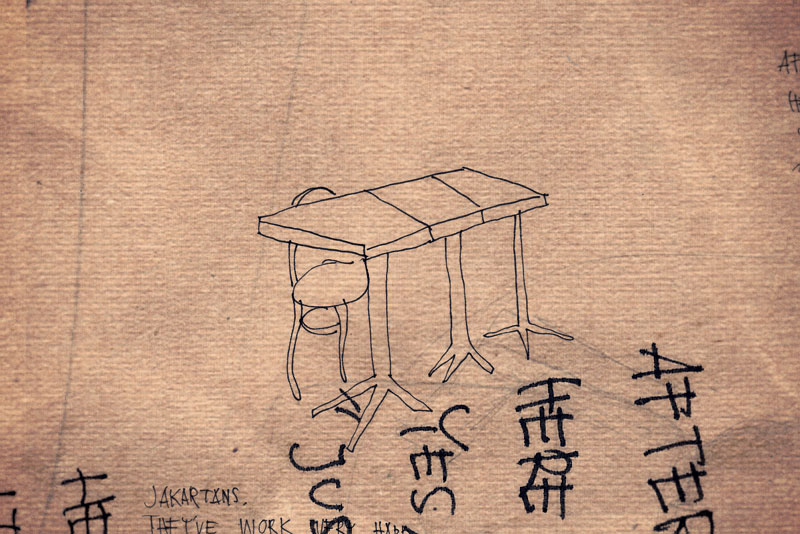 AFTER
HERE
YES.
JUS
HE
JAKARTANS.
THEY'VE WORK VERY